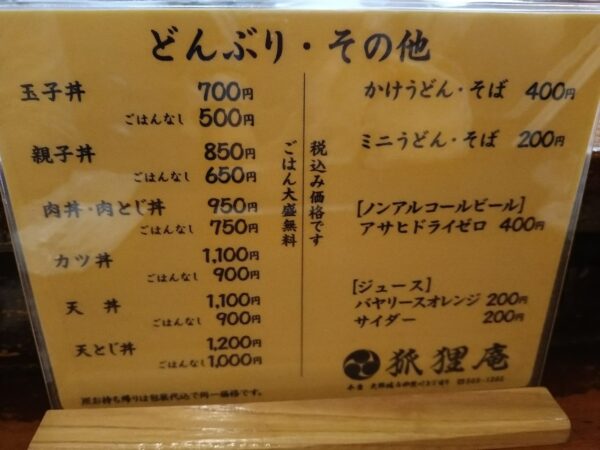 どんぶり・その他
玉子丼 700円
ごはんなし 500円
親子丼 850円
ごはんなし 650円
肉丼・肉とじ丼 950円
ごはんなし 750円
カツ丼 1,100円
ごはんなし 900円
天丼 1,100円
ごはんなし 900円
天とじ丼 1,200円
ごはんなし 1,000円
ごはん大盛無料
税込み価格です
かけうどん・そば 400円
ミニうどん・そば 200円
[ノンアルコールビール]
アサヒドライゼロ 400円
[ジュース]
バヤリースオレンジ 200円
サイダー 200円
狐狸庵
お持ち帰りは包装代込で同一価格です。